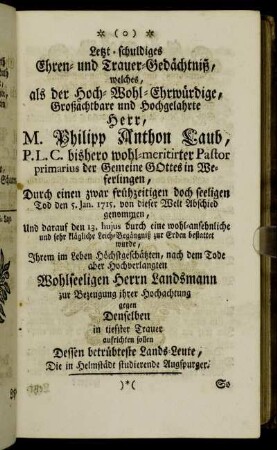 * (o) *
Letzt-schuldiges
Ehren- und Trauer-Gedächtniß,
welches,
als der Hoch-Wohl-Ehrwürdige,
Großachtbare und Hochgelahrte
Herr,
M. Philipp Anthon Laub,
P. L. C. bishero wohl-meritirter Pastor
primarius der Gemeine GOttes in We-
ferlingen,
Durch einen zwar frühzeitigen doch seeligen
Tod den 5. Jan. 1715. von dieser Welt Abschied
genommen,
Und darauf den 13. hujus durch eine wohl-ansehnliche
und sehr klägliche Leich-Begängniß zur Erden bestattet
wurde,
Ihrem im Leben Höchstgeschätzten, nach dem Tode
aber Hochverlangten
Wohlseeligen Herrn Landsmann
zur Bezeugung ihrer Hochachtung
gegen
Denselben
in tiefster Trauer
aufrichten sollen
Dessen betrübteste Lands-Leute,
Die in Helmstädt studierende Augspurger.
)*( So